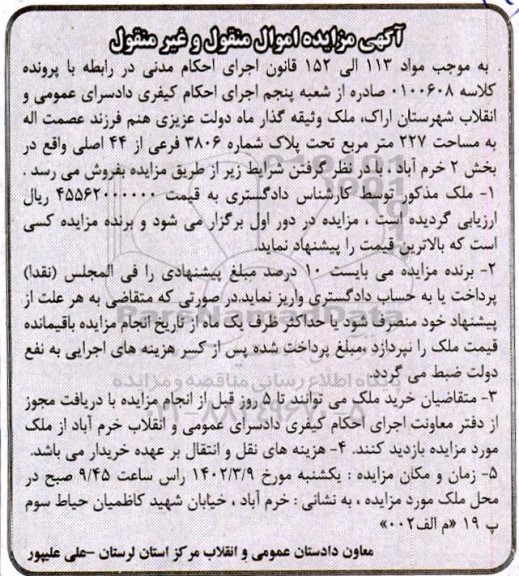 آگهی مزایده اموال منقول و غیر منقول
به موجب مواد ۱۱۳ الی ۱۵۲ قانون اجرای احکام مدنی در رابطه با پرونده
کلاسه ۰۱۰۰۶۰۸ صادره از شعبه پنجم اجرای احکام کیفری دادسرای عمومی و
انقلاب شهرستان اراک، ملک وثیقه گذار ماه دولت عزیزی هنم فرزند عصمت اله
به مساحت ۲۲۷ متر مربع تحت پلاک شماره ۳۸۰۶ فرعی از ۴۴ اصلی واقع در
بخش ۲ خرم آباد ، با در نظر گرفتن شرایط زیر از طریق مزایده بفروش می رسد .
۱- ملک مذکور توسط کارشناس دادگستری به قیمت ۴۵۵۶۲۰۰۰۰۰۰ ریال
ارزیابی گردیده است ، مزایده در دور اول برگزار می شود و برنده مزایده کسی
است که بالاترین قیمت را پیشنهاد نماید.
۲- برنده مزایده می بایست ۱۰ درصد مبلغ پیشنهادی را فی المجلس (نقدا)
پرداخت یا به حساب دادگستری واریز نماید.در صورتی که متقاضی به هر علت از
پیشنهاد خود منصرف شود یا حداکثر ظرف یک ماه از تاریخ انجام مزایده باقیمانده
قیمت ملک را نپردازد ،مبلغ پرداخت شده پس از کسر هزینه های اجرایی به نفع
دولت ضبط می گردد.
۳- متقاضیان خرید ملک می توانند تا ۵ روز قبل از انجام مزایده با دریافت مجوز
از دفتر معاونت اجرای احکام کیفری دادسرای عمومی و انقلاب خرم آباد از ملک
مورد مزایده بازدید کنند. ۴- هزینه های نقل و انتقال بر عهده خریدار می باشد.
۵- زمان و مکان مزایده : یکشنبه مورخ ۱۴۰۲/۳/۹ راس ساعت ۹/۴۵ صبح در
محل ملک مورد مزایده ، به نشانی : خرم آباد ، خیابان شهید کاظمیان حیاط سوم
پ ۱۹ «م الف۰۰۲»
معاون دادستان عمومی و انقلاب مرکز استان لرستان -علی علیپور
ParsNamadData
پایگاه اطلاع رسانی مناقصه و مزایده